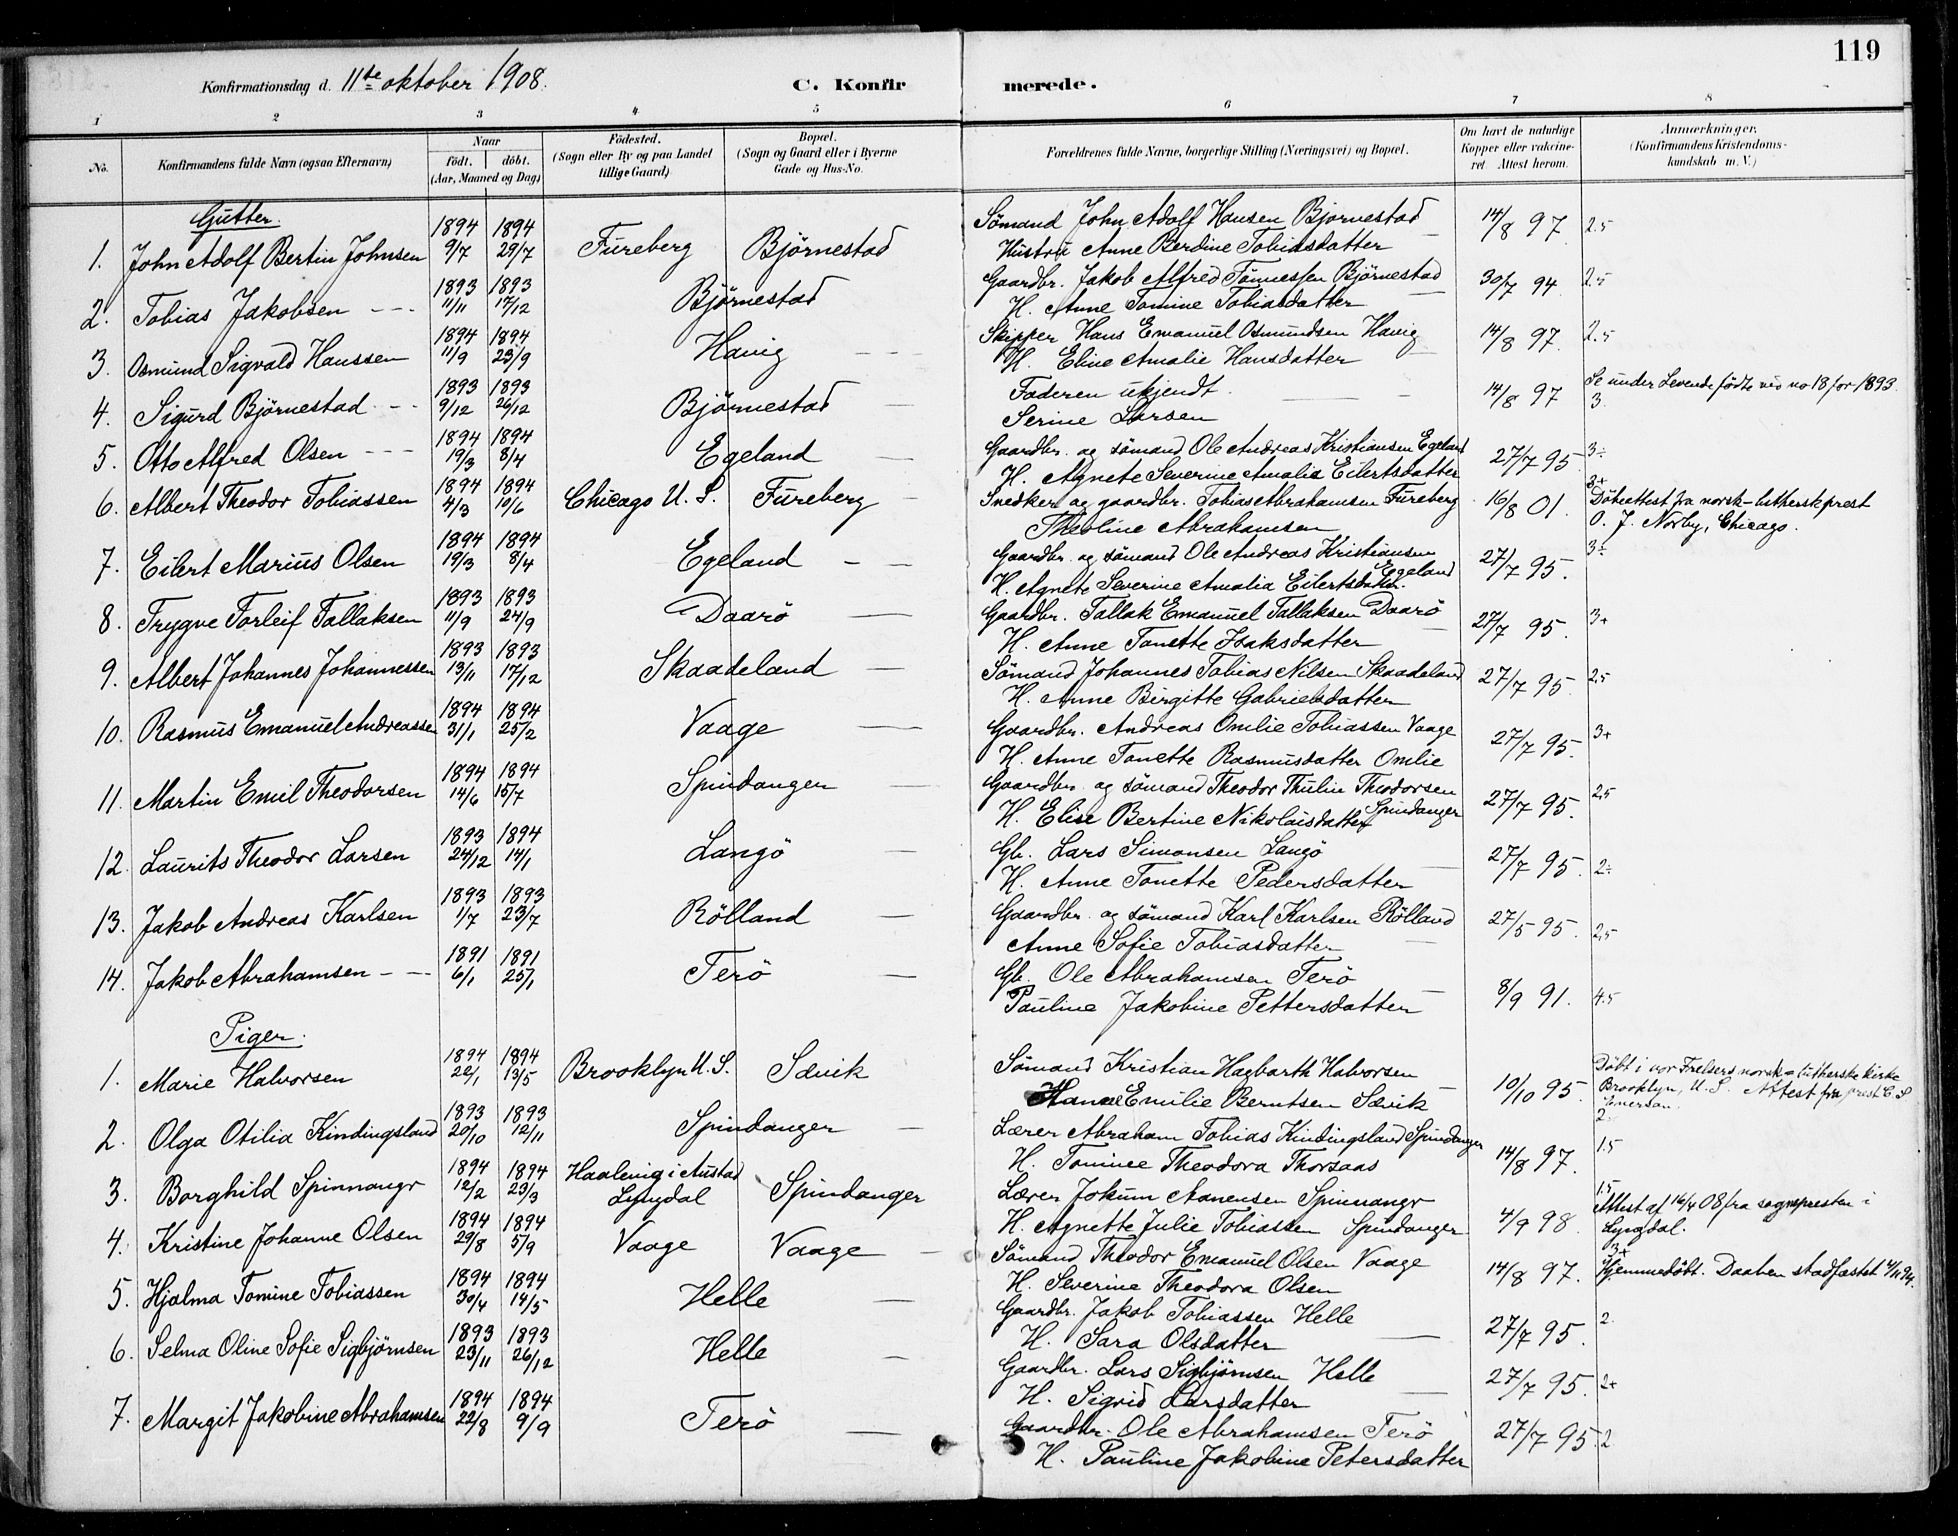 119
Konfirmationsdag d. 11te oktober 1908.
C. Konfirmerede.
1 2 3 4 5 6 7 8
No. Konfirmandens fulde Navn (ogsaa Efternavn) Naar födt. döbt. (Aar, Maaned og Dag) Födested. (Sogn eller By og paa Landet tillige Gaard) Bopæl. (Sogn og Gaard eller i Byerne Gade og Hus-No. Forældrenes fulde Navne, borgerlige Stilling (Næringsvei) og Bopæl. Om havt de naturlige Kopper eller vakcineret. Attest herom. Anmærkninger. (Konfirmandens Kristendomskundskab m. V.)
Gutter.
1. John Adolf Bertin Johnsen 1894 9/7 1894 29/7 Fureberg Björnestad Sömand John Adolf Hansen Bjornestad 14/8 97. 2.5
Hustru Anne Berdine Tobiasdatter
2. Tobias Jakobsen 1893 11/11 1893 17/12 Björnestad Gaardbr. Jakob Alfred Tönnessen Björnestad 30/7 94. 2.5
H. Anne Tomine Tobiasdatter
3. Osmund Sigvald Hanssen 1894 11/9 1894 23/9 Havig Skipper Hans Emanuel Osmundsen Havig 14/8 97. 2.5
H. Eline Amalie Hansdatter
4. Sigurd Björnestad 1893 9/12 1893 26/12 Björnestad Faderen ukjendt. 14/8 97 Se under Levende födte ved no 18 for 1893.
Serine Larsen 3.
5. Otto Alfred Olsen 1894 19/3 1894 8/4 Egeland Gaardbr. og sömand Ole Andreas Kristiansen Egeland 27/7 95. 3÷
H. Agnete Severine Amalia Eilertsdatter
6. Albert Theodor Tobiassen 1894 4/3 1894 10/6 Chicago U. S. Fureberg Snedker og gaardbr. Tobias Abrahamsen Fureberg 16/8 01. 3+ Döbeattest fra norsk-luthersk prest
Theoline Abrahamsen O. J. Norby, Chicago.
7. Eilert Marius Olsen 1894 19/3 1894 8/4 Egeland Gaardbr. og sömand Ole Andreas Kristiansen Egeland 27/7 95. 3÷
H. Agnete Severine Amalia Eilertsdatter.
8. Trygve Torleif Tallaksen 1893 11/9 1893 24/9 Daarö Gaardbr. Tallak Emanuel Tallaksen Daarö 27/7 95. 3+
H. Anne Tonette Isaksdatter
9. Albert Johannes Johannessen 1893 13/11 1893 17/12 Skaadeland Sömand Johannes Tobias Nilsen Skaadeland 27/7 95. 2,5
H. Anne Birgitte Gabrielsdatter
10. Rasmus Emanuel Andreassen 1894 31/1 1894 25/2 Vaage Gaardbr. Andreas Omlie Tobiassen Vaage 27/7 95. 3+
H. Anne Tonette Rasmusdatter Omlie
11. Martin Emil Theodorsen 1894 14/6 1894 15/7 Spindanger Gaardbr. og sömand Theodor Thulin Theodorsen 27/7 95. 2,5
H. Elise Bertine Nikolaisdatter Spindanger
12. Laurits Theodor Larsen 1893 24/12 1894 14/1 Langö Gb. Lars Simonsen Langö 27/7 95. 2÷
H. Anne Tonette Pedersdatter
13. Jakob Andreas Karlsen 1893 1/7 1893 23/7 Rölland Gaardbr. og sömand Karl Karlsen Rölland 27/5 95. 2,5
Anne Sofie Tobiasdatter
14. Jakob Abrahamsen 1891 6/1 1891 25/1 Terö Gb. Ole Abrahamsen Terö 8/9 91. 4.5
Pauline Jakobine Pettersdatter
Piger.
1. Marie Halvorsen 1894 22/1 1894 13/5 Brooklyn U. S. Sævik Sömand Kristian Hagbarth Halvorsen 10/10 95. Döbt i vor Frelsers norsk-lutherske kirke
Emilie Berntsen Sævik Brooklyn, U. S. Attest fra prest C. S. Everson. 2.
2. Olga Otilia Kindingsland 1893 20/10 1893 12/11 Spindanger Lærer Abraham Tobias Kindingsland Spindanger 14/8 97. 1.5
H. Tominee Theodora Thorsaas
3. Borghild Spinnangr 1894 12/2 1894 23/3 Haalevig i Austad Lyngdal Spindanger Lærer Jokum Aanensen Spinnangr 4/9 98. 1.5 Attest af 16/4 08 fra sognepresten i
H. Agnette Julie Tobiassen Spindanger Lyngdal.
4. Kristine Johanne Olsen 1894 29/8 1894 5/9 Vaage Vaage Sömand Theodor Emanuel Olsen Vaage 14/8 97. 3+ Hjemmedöbt. Daaben stadfæstet 4/11 94.
H. Severine Theodora Olsen
5. Hjalma Tomine Tobiassen 1894 30/4 1894 14/5 Helle Gaardbr. Jakob Tobiassen Helle 27/7 95. 2.
H. Sara Olsdatter
6. Selma Oline Sofie Sigbjörnsen 1893 23/11 1893 26/12 Helle Gaardbr. Lars Sigbjörnsen Helle 27/7 95. 2+
H. Sigrid Larsdatter
7. Margit Jakobine Abrahamsen 1894 22/8 1894 9/9 Terö Gaardbr. Ole Abrahamsen Terö 27/7 95. 2
H. Pauline Jakobine Petersdatter